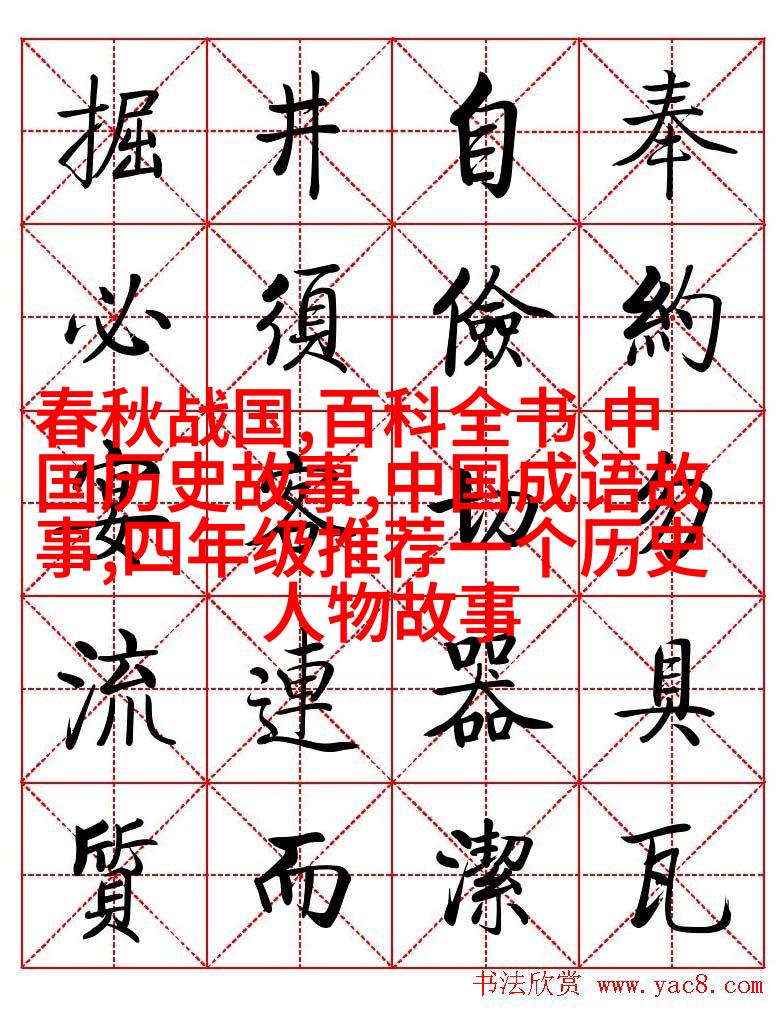 掘井自奉
必須儉約
春秋战国,百科全书,中
国历史故事,中国成语故
事,四年级推荐一个历史
人物故事
宴客切勿
流連器具
質而潔瓦
书法欣赏 www.yac8.com